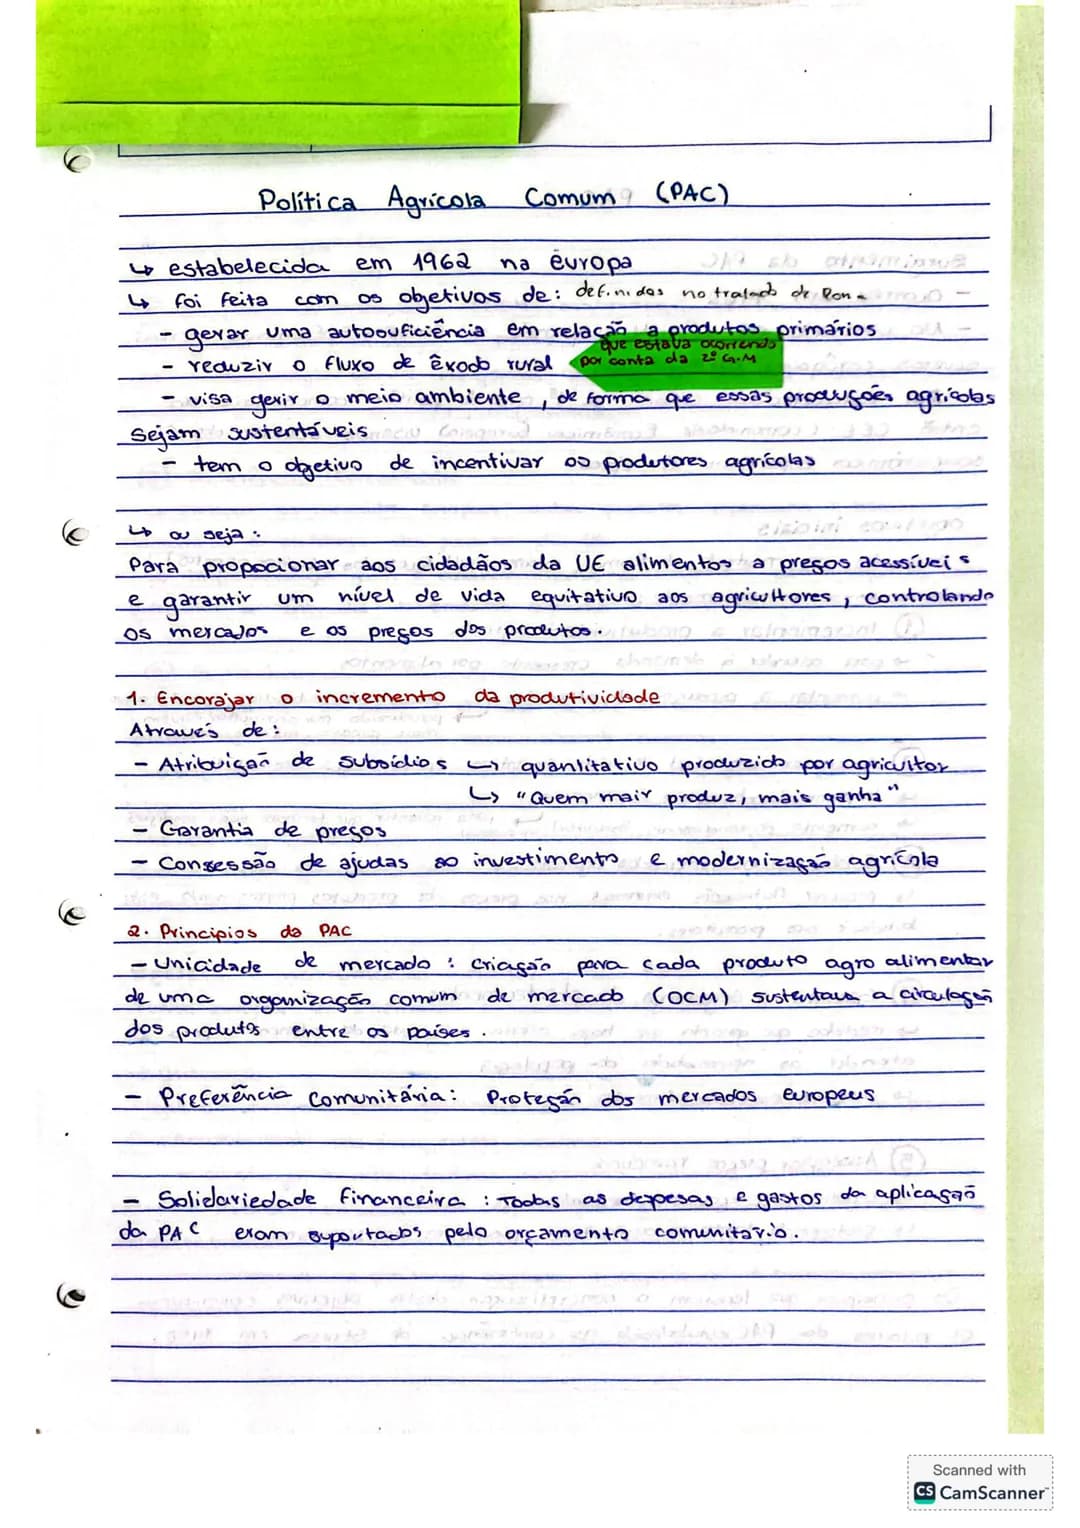 Política Agrícola Comum (PAC)
↳ estabelecida em 1962 na europa
↳ foi feita com os objetivos de: definidos no tratado de Roma
- gerar uma autosuficiência em relação a produtos primários
- reduzir o fluxo de êxodo rural
que estava ocorrendo
por conta da 2º G.M
- visa gerir o meio ambiente, de forma que essas produções agrícolas
sejam sustentáveis
- tem o objetivo de incentivar os produtores agrícolas
↳ ou seja:
Para propocionar aos cidadãos da UE alimentos a preços acessíveis
e garantir um nível de vida equitativo aos agricultores, controlando
os mercados e os preços dos produtos.
1. Encorajar o incremento da produtividade
Através de:
- Atribuição de subsídios ↳ quantitativo produzido por agricultor
↳ "Quem mair produz, mais ganha"
- Garantia de preços
- Consessão de ajudas ao investimento e modernização agrícola
2. Principios da PAC
- Unicidade de mercado: Criação para cada produto agro alimentar
de uma organização comum de mercado (OCM) sustentava a circulação
dos produtos entre os países.
- Preferência Comunitária: Proteção dos mercados Europeus
- Solidariedade Financeira: Todas as despesas e gastos da aplicação
da PAC eram suportados pelo orçamento comunitário.
Scanned with
CS CamScanner